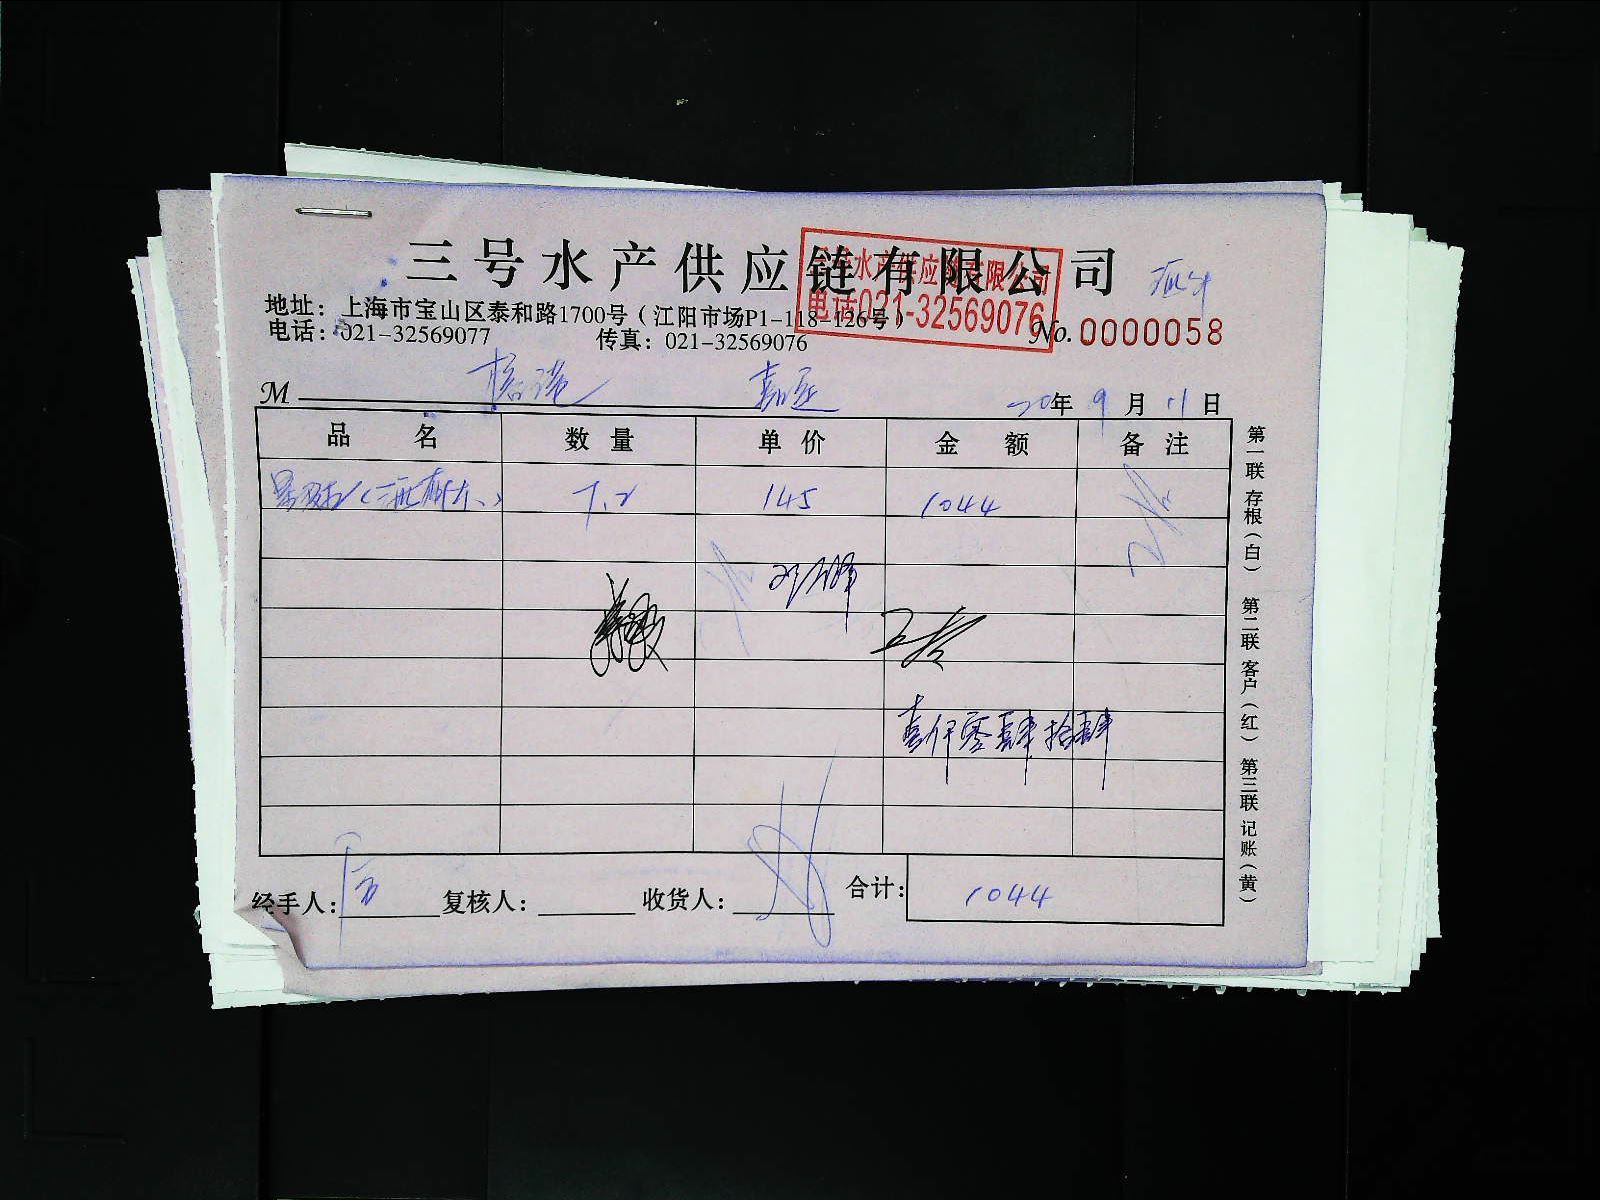 三号水产供应链有限公司
三号水产供应链有限公司
电话021-32569076
地址：上海市宝山区泰和路1700号（江阳市场P1-118-126号）
电话：021-32569077 传真：021-32569076
No.0000058
M
20年9月11日
品名 数量 单价 金额 备注
7.2 145 1044
壹仟零肆拾肆
经手人： 复核人： 收货人： 合计： 1044
第一联 存根（白） 第二联 客户（红） 第三联 记账（黄）